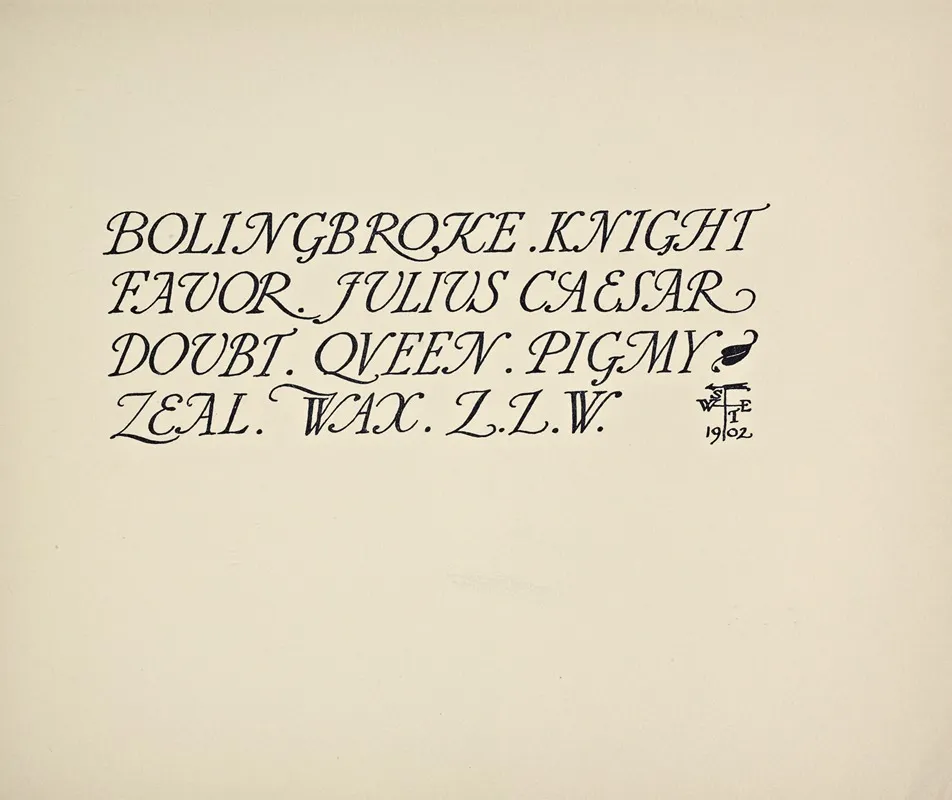 BOLINGBROKE . KNIGHT
FAVOR. JULIUS CAESAR
DOUBT. QVEEN . PIGMY
ZEAL. WAX. Z.Z.W.
S
W E
T
1902